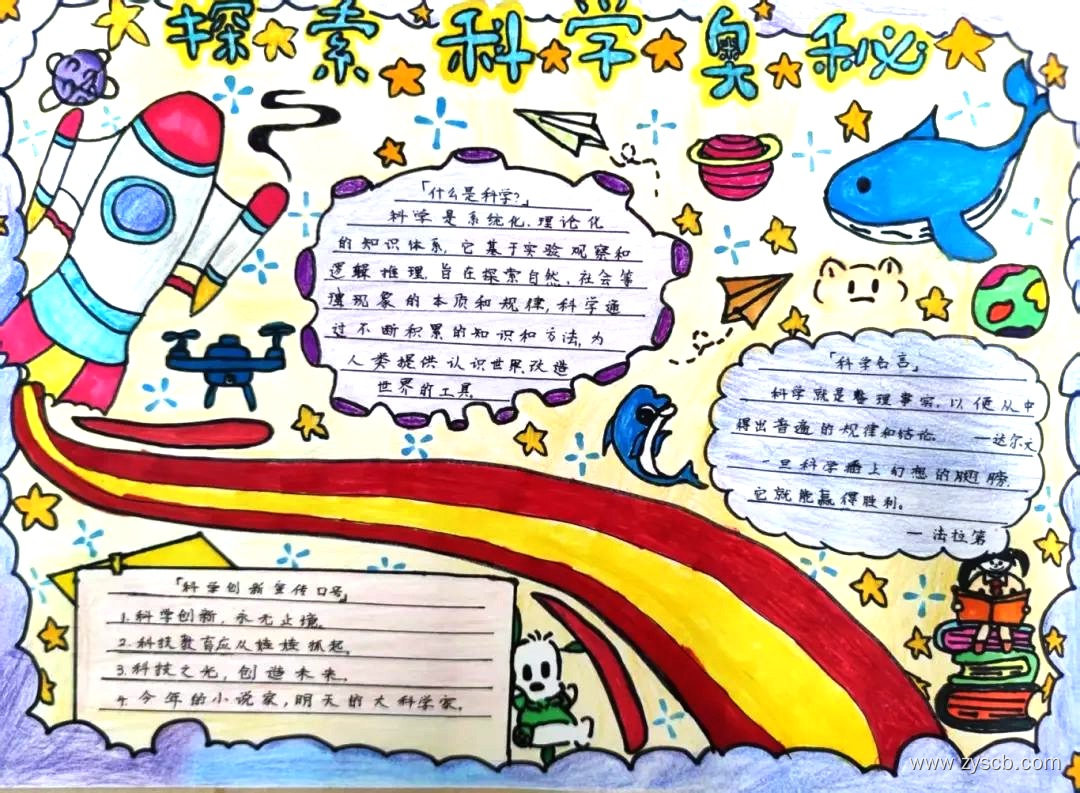 探索科学奥秘
「什么是科学?」
科学是系统化、理论化
的知识体系,它基于实验观察和
逻辑推理,旨在探索自然、社会等
现象的本质和规律,科学通
过不断积累的知识和方法,为
人类提供认识世界、改造
世界的工具。
「科学名言」
科学就是整理事实,以便从中
得出普遍的规律和结论。 —达尔文
一旦科学插上幻想的翅膀,
它就能赢得胜利。
—法拉第
「科学创新宣传口号」
1.科学创新,永无止境。
2.科技教育应从娃娃抓起。
3.科技之光,创造未来。
4.今年的小说家,明天的大科学家。
www.zyscb.com